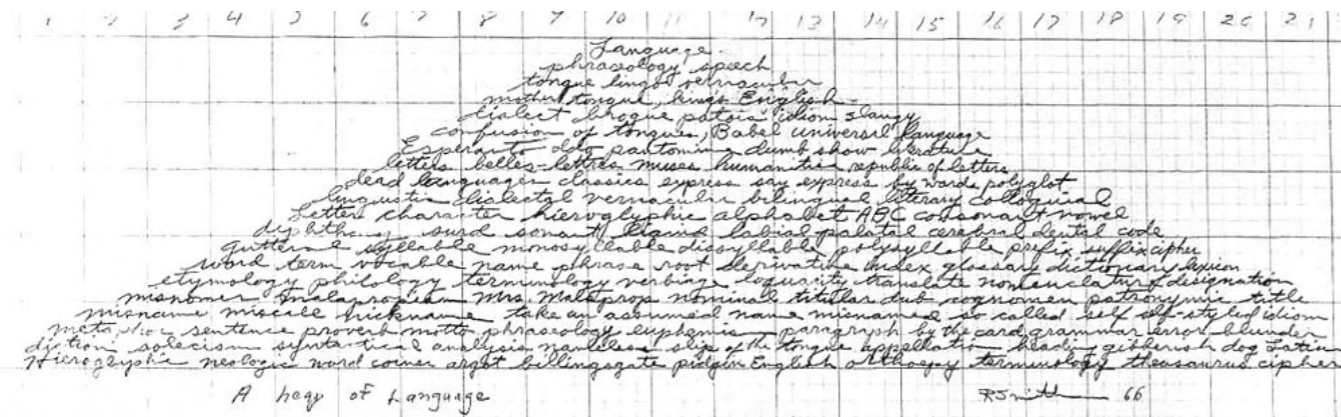 1 2 3 4 5 6 7 8 9 10 11 12 13 14 15 16 17 18 19 20 21
Language
phraseology speech
tongue lingo vernacular
mother tongue, king's English
dialect brogue patois idiom slangy
confusion of tongues, Babel universal language
Esperanto dog pantomime dumb show literature
letters belles-lettres muses humanities republic of letters
dead languages classics express say express by words polyglot
linguistic dialectal vernacular bilingual literary colloquial
Letters character hieroglyphic alphabet ABC consonant vowel
diphthong surd sonant liquid labial palatal cerebral dental code
guttural syllable monosyllable dissyllable polysyllable prefix suffix cipher
word term vocable name phrase root derivative index glossary dictionary lexicon
etymology philology terminology verbiage loquacity translate nomenclature designation
misnomer malapropism Mrs. Malaprop nominal titular dub cognomen patronymic title
misname miscall nickname take an assumed name misnamed so called self self-styled idiom
metaphor sentence proverb motto phraseology euphemism paragraph by the card grammar error blunder
diction solecism syntactical analysis nameless slip of the tongue appellation heading gibberish dog Latin
Hieroglyphic neologic word coiner argot billingsgate pidgin English orthoepy terminology theasaurus cipher
A heap of Language
R Smith 66